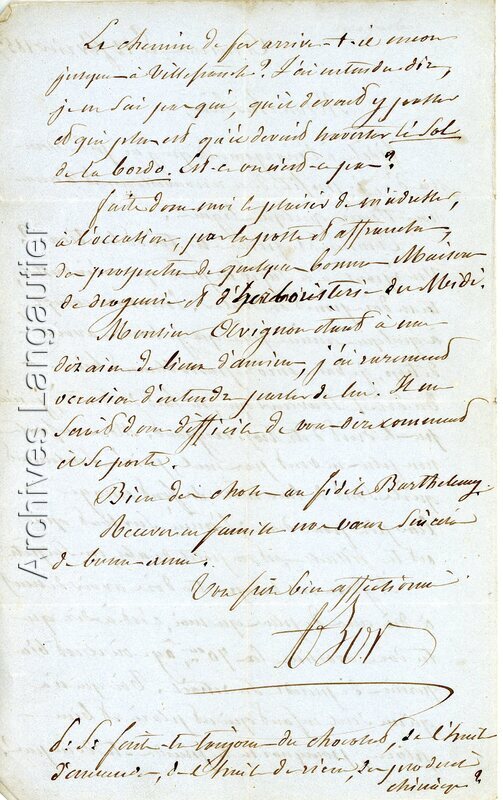 Le chemin de fer arrive-t-il encore
jusque-à Villefranche? J'ai entendu dire,
je ne sai par qui, qu'il devait y passer
et qui plus est qu'il devait traverser le Sol
de la bordo. Est-ce vrai ou pas?
faite donc moi le plaisir de m'adresser,
à l'occasion, par la poste et affranchi,
des prospectus de quelque bonne Maison
de droguerie et d'herboristerie du Midi.
Monsieur Olvignon étant à une
dizaine de lieux d'Amiens, j'ai rarement
occasion d'entendre parler de lui. Il me
serait donc difficile de vous dire comment
il se porte.
Bien des choses au fidèle Barthelemy.
Recevez en famille nos vœux sincères
de bonne année.
Votre frère bien affectionné
ABor
P: S: faite-te toujours du chocolat, de l'huile
d'amande, de l'huile de ricin, des produits
chimique?
Archives Langautier